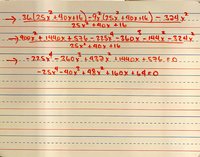 → 36(25x²+40x+16)-9x²(25x²+40x+16) - 324x²
25x²+40x+16
→ 900x²+1440x+576-225x⁴-360x³-144x²-324x²
25x²+40x+16
→ -225x⁴-360x³+432x²+1440x+576=0
-25x⁴-40x³+48x²+160x+64=0